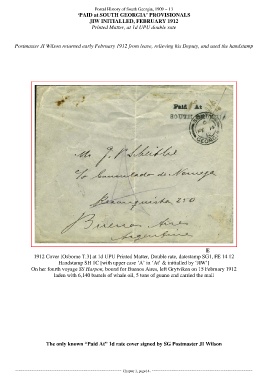 Postal History of South Georgia, 1909 – 13
'PAID at SOUTH GEORGIA' PROVISIONALS
JIW INITIALLED, FEBRUARY 1912
Printed Matter, at 1d UPU double rate
Postmaster JI Wilson returned early February 1912 from leave, relieving his Deputy, and used the handstamp
Paid At
SOUTH GEORGIA
Mr J. P.
c/o Consulado de Noruega
Reconquista 250
Buenos Aires
Argentine
1912 Cover [Osborne T.3] at 1d UPU Printed Matter, Double rate, datestamp SG1, FE 14 12
Handstamp SH 1C [with upper case 'A' in 'At' & initialled by 'JIW']
On her fourth voyage SS Harpon, bound for Buenos Aires, left Grytviken on 15 February 1912
laden with 6,140 barrels of whale oil, 5 tons of guano and carried the mail
The only known "Paid At" 1d rate cover signed by SG Postmaster JI Wilson